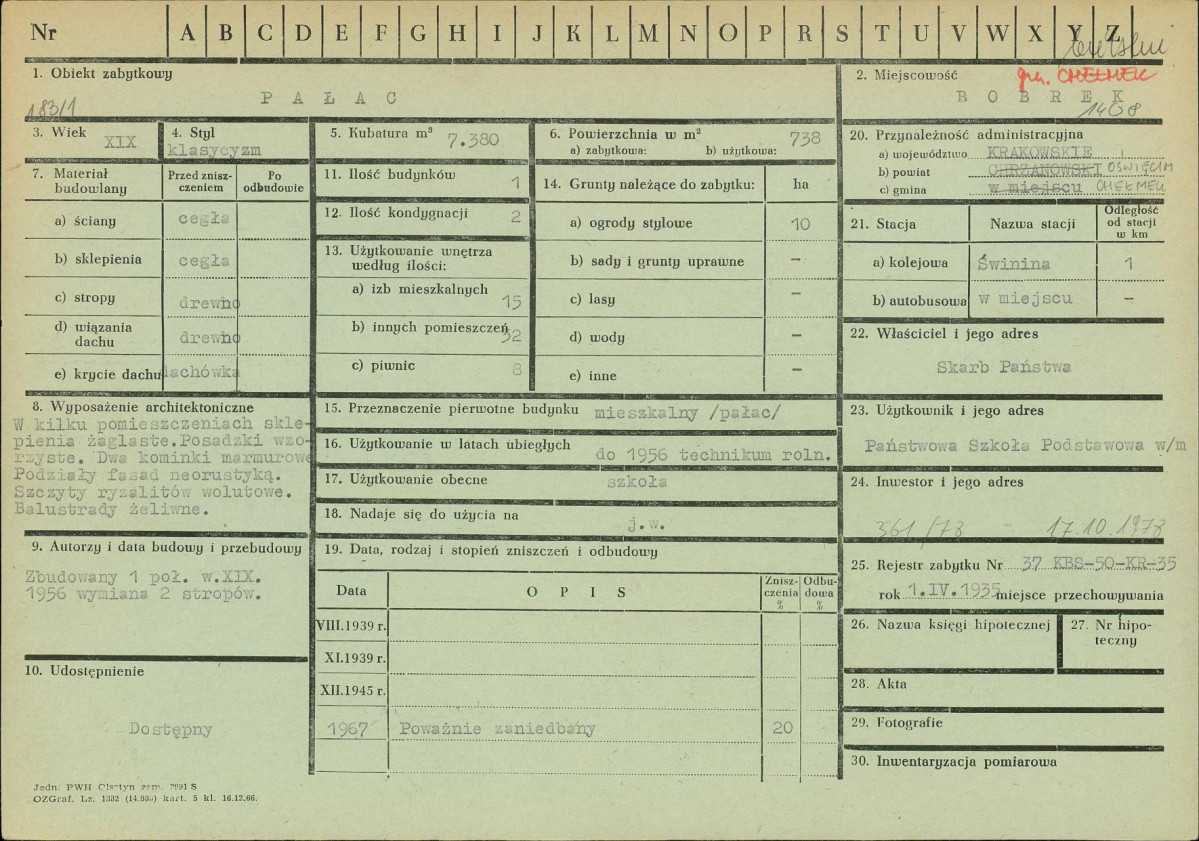 Nr A B C D E F G H I J K L M N O P R S T U V W X Y Z
1. Obiekt zabytkowy
183/1
PAŁAC
2. Miejscowość
gm. CHEŁMEK
BOBREK
1408
3. Wiek XIX
4. Styl
klasycyzm
5. Kubatura m³ 7.380
6. Powierzchnia w m² 738
a) zabytkowa: b) użytkowa:
7. Materiał budowlany
Przed znisz-
czeniem
Po
odbudowie
a) ściany cegła
b) sklepienia cegła
c) stropy drewno
d) wiązania
dachu drewno
e) krycie dachu dachówka
11. Ilość budynków 1
12. Ilość kondygnacji 2
13. Użytkowanie wnętrza
według ilości:
a) izb mieszkalnych 15
b) innych pomieszczeń 32
c) piwnic 8
14. Grunty należące do zabytku: ha
a) ogrody stylowe 10
b) sady i grunty uprawne –
c) lasy –
d) wody –
e) inne –
20. Przynależność administracyjna
a) województwo KRAKOWSKIE
b) powiat CHRZANOWSKI OŚWIĘCIM
c) gmina w miejscu CHEŁMEK
21. Stacja Nazwa stacji
Odległość
od stacji
w km
a) kolejowa Świnina 1
b) autobusowa w miejscu –
22. Właściciel i jego adres
Skarb Państwa
8. Wyposażenie architektoniczne
W kilku pomieszczeniach skle-
pienia żaglaste.Posadzki wzo-
rzyste. Dwa kominki marmurowe
Podziały fasad neorustyką.
Szczyty ryzalitów wolutowe.
Balustrady żeliwne.
15. Przeznaczenie pierwotne budynku mieszkalny /pałac/
16. Użytkowanie w latach ubiegłych
do 1956 technikum roln.
17. Użytkowanie obecne szkoła
18. Nadaje się do użycia na j.w.
23. Użytkownik i jego adres
Państwowa Szkoła Podstawowa w/m
24. Inwestor i jego adres
361/78 - 17.10.1978
9. Autorzy i data budowy i przebudowy
Zbudowany 1 poł. w.XIX.
1956 wymiana 2 stropów.
19. Data, rodzaj i stopień zniszczeń i odbudowy
Data OPIS
Znisz-
czenia
%
Odbu-
dowa
%
VIII.1939 r.
XI.1939 r.
XII.1945 r.
1967 Poważnie zaniedbany 20
25. Rejestr zabytku Nr 37 KBS-50-KR-35
rok 1.IV.1935 miejsce przechowywania
26. Nazwa księgi hipotecznej
27. Nr hipo-
teczny
10. Udostępnienie
Dostępny
28. Akta
29. Fotografie
30. Inwentaryzacja pomiarowa
Jedn. PWH Olsztyn zam. 7991 S
OZGraf. Lz. 1332 kart. 5 kl. 16.12.66.